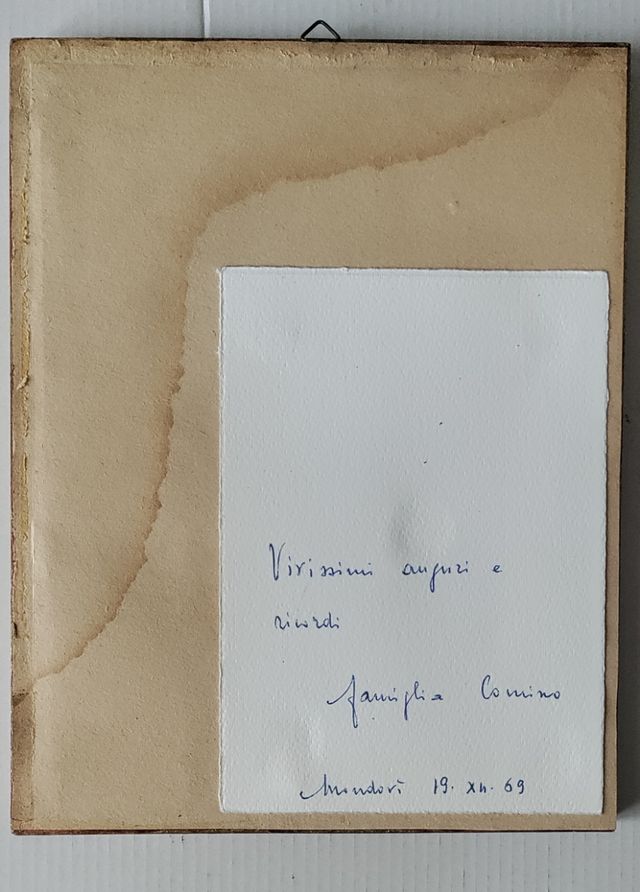 Vivissimi auguri e
ricordi
famiglia Comino
Mondovì 19. XII. 69